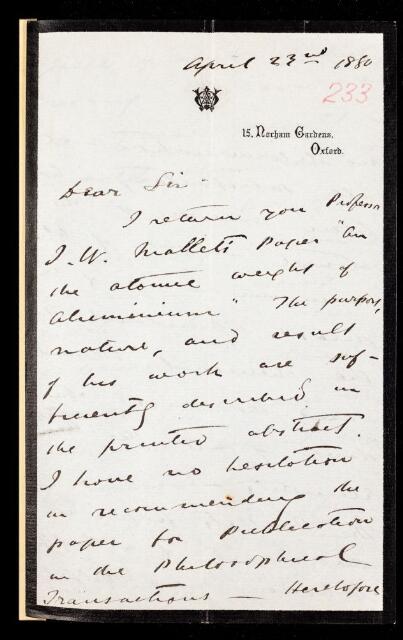 April 23rd 1880
233
15, Norham Gardens,
Oxford.
Dear Sir
I return you Professor
J. W. Mallet's Paper "On
the atomic weight of
Aluminium" The purpose,
nature, and result
of his work are suf-
ficiently described in
the printed abstract.
I have no hesitation
in recommending the
paper for Publication
in the Philosophical
Transactions — Heretofore